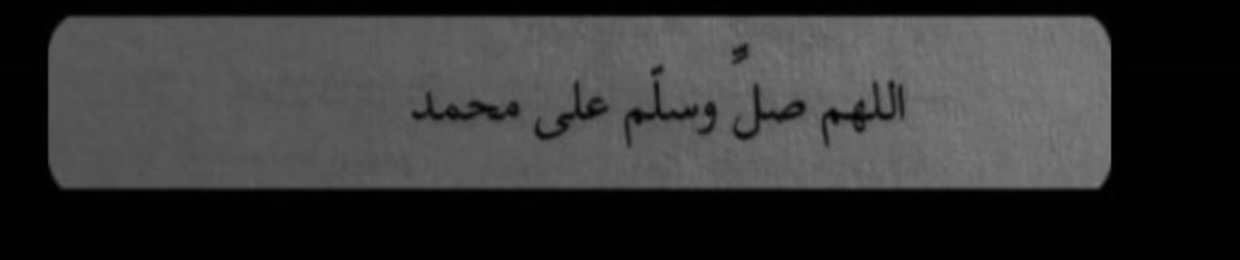 اللهم صلًّ وسلّم على محمد